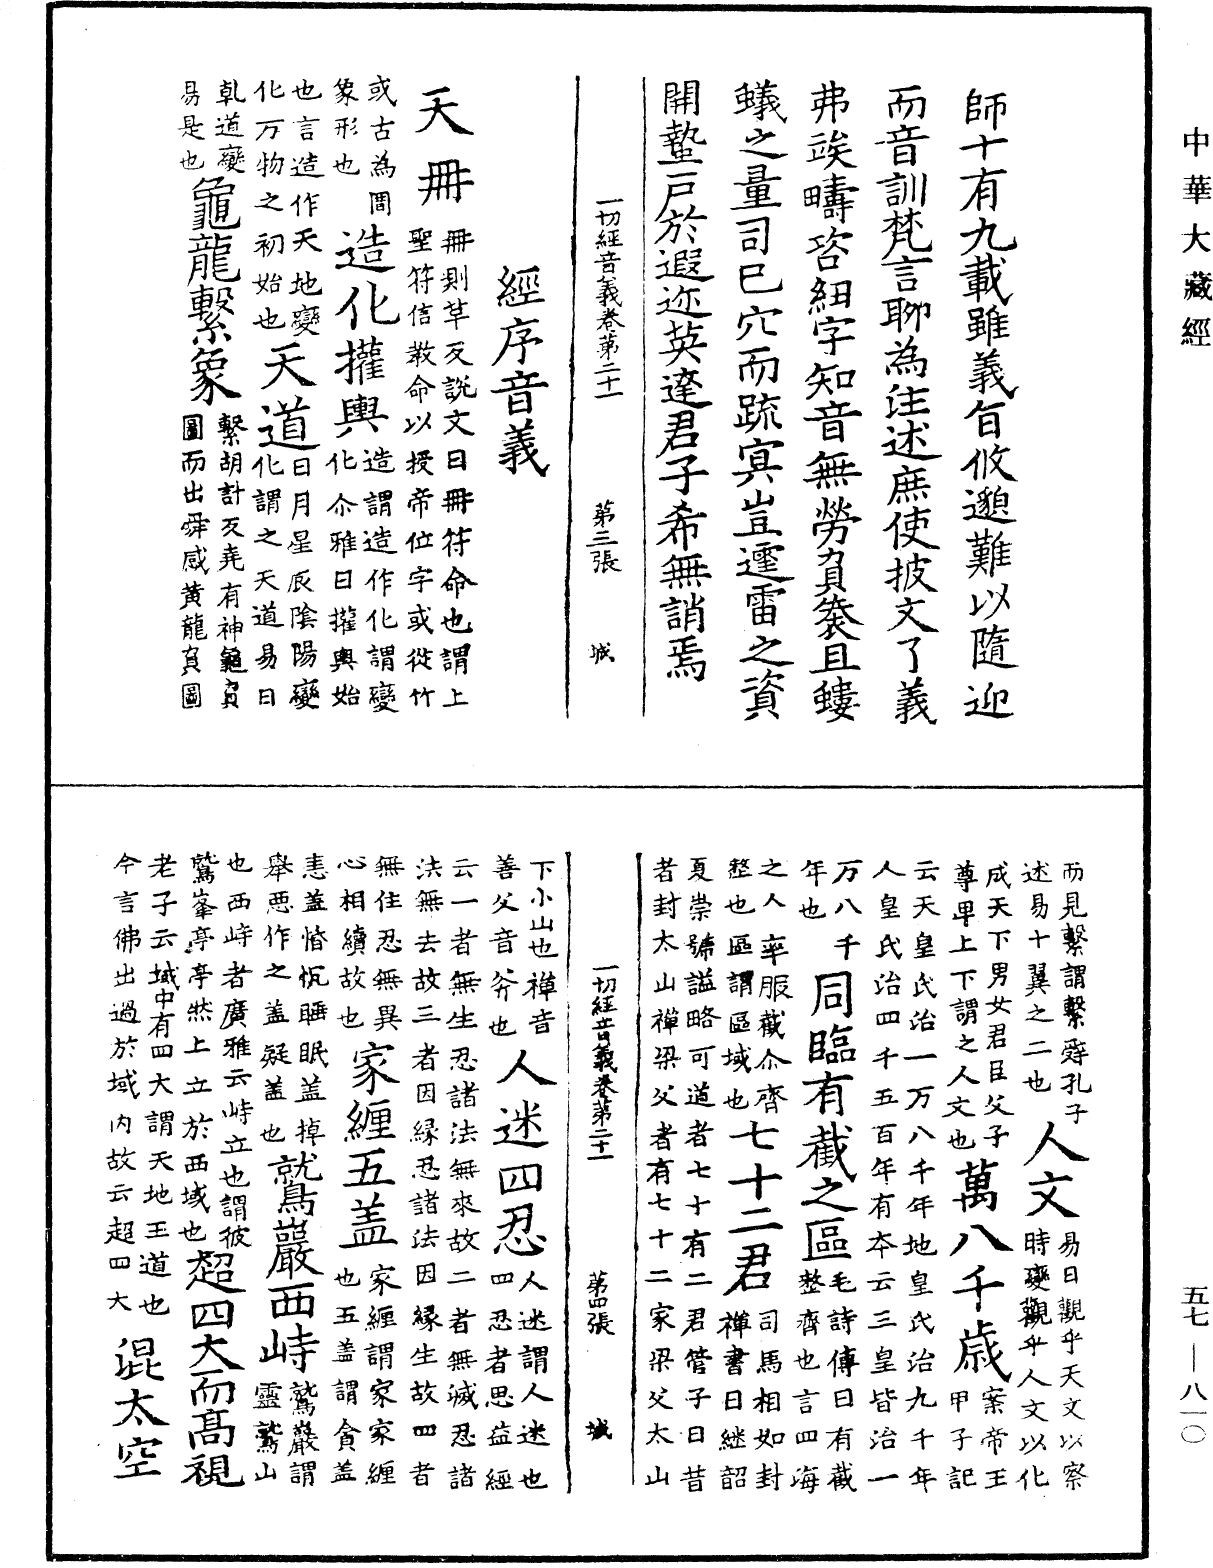 中華大藏經
師十有九載雖義旨攸邈難以隨迎
而音訓梵言聊為注述庶使披文了義
弗𥪡疇咨紐字知音無勞負袠且螻
蟻之量司巳穴而疏㝠豈𮞏雷之資
開蟄戸於遐迩英達君子希無誚焉
一切經音義卷第二十一 第三張 城
經序音義
天冊 冊則草反說文曰冊符命也謂上
聖符信教命以授帝位字或從竹
或古為𠕋 造化權輿 造謂造作化謂變
象形也 化尒雅曰權輿始
也言造作天地變
化万物之初始也 天道 日月星辰陰陽變
化謂之天道易曰
乹道變
易是也 龜龍繫象 繫胡計反堯有神龜負
圖而出舜感黃龍負圖
而見繫謂繫辤孔子
述易十翼之二也 人文 易曰觀乎天文以察
時變觀乎人文以化
成天下男女君臣父子
尊卑上下謂之人文也 萬八千歲 案帝王
甲子記
云天皇氏治一万八千年地皇氏治九千年
人皇氏治四千五百年有夲云三皇皆治一
万八千
年也 同臨有截之區 毛詩傳曰有截
整齊也言四海
之人率服截尒齊
整也區謂區域也 七十二君 司馬相如封
禪書曰継韶
夏崇號謚略可道者七十有二君管子曰昔
者封太山禪梁父者有七十二家梁父太山
一切經音義卷第二十一 第四張 城
下小山也禪音
善父音斧也 人迷四忍 人迷謂人迷也
四忍者思益經
云一者無生忍諸法無來故二者無滅忍諸
法無去故三者因縁忍諸法因縁生故四者
無住忍無異
心相續故也 家纏五盖 家纏謂家家纏
也五盖謂貪盖
恚盖惛忱睡眠盖掉
舉惡作之盖疑盖也 就鳥巖西峙 鷲巖謂
靈鷲山
也西峙者廣雅云峙立也謂彼
鷲峯亭亭然上立於西域也 超四大而高視
老子云域中有四大謂天地王道也
今言佛出過於域内故云超四大 混太空
五七—八一〇